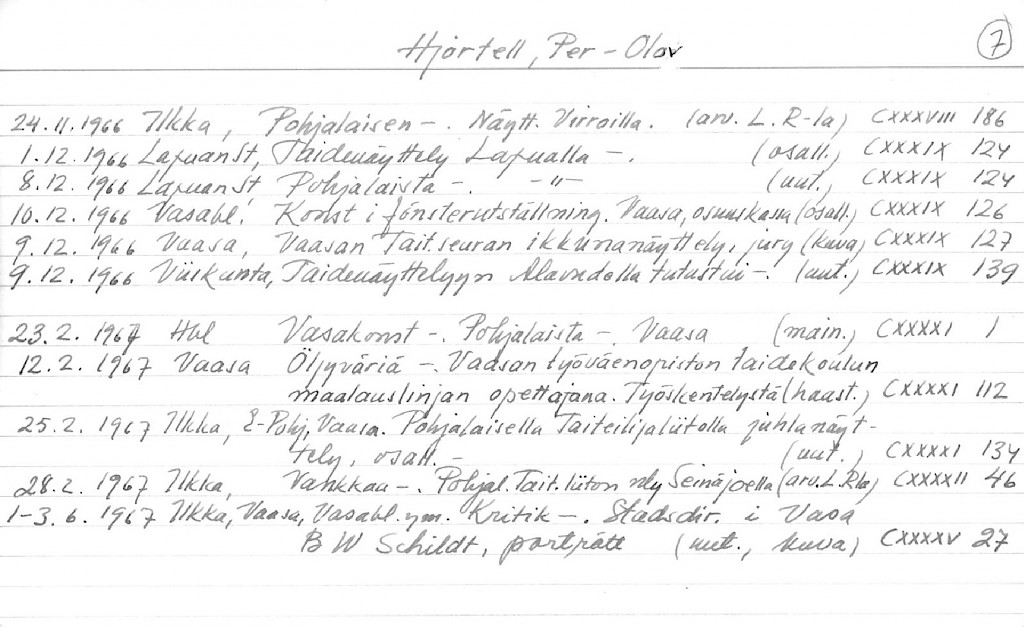 Hjortell, Per-Olov 7
24.11.1966 Ilkka, Pohjalaisen -. Näytt. Virroilla. (arv. L. R-la) CXXXVIII 186
1.12.1966 LapuanSt, Taidenäyttely Lapualla -. (osall.) CXXXIX 124
8.12.1966 LapuanSt, Pohjalaista -. -"- (uut.) CXXXIX 124
10.12.1966 Vasabl. Konst i fönsterutställning. Vaasa, osuuskassa (osall.) CXXXIX 126
9.12.1966 Vaasa, Vaasan Tait.seuran ikkunanäyttely, jury (kuva) CXXXIX 127
9.12.1966 Viiskunta, Taidenäyttelyyn Alavudella tutustui -. (uut.) CXXXIX 139
23.2.1967 Hbl Vasakonst -. Pohjalaista -. Vaasa (main.) CXXXXI 1
12.2.1967 Vaasa Öljyväriä -. Vaasan työväenopiston taidekoulun
maalauslinjan opettajana. Työskentelystä (haast.) CXXXXI 112
25.2.1967 Ilkka, E-Pohj, Vaasa. Pohjalaisella Taiteilijaliitolla juhlanäyt-
tely, osall. - (uut.) CXXXXI 134
28.2.1967 Ilkka, Vankkaa -. Pohjal. Tait.liiton nly Seinäjoella (arv. L. Rla) CXXXXII 46
1-3.6.1967 Ilkka, Vaasa, Vasabl. ym. Kritik -. Stadsdir. i Vasa
B W Schildt, porträtt (uut., kuva) CXXXXV 27